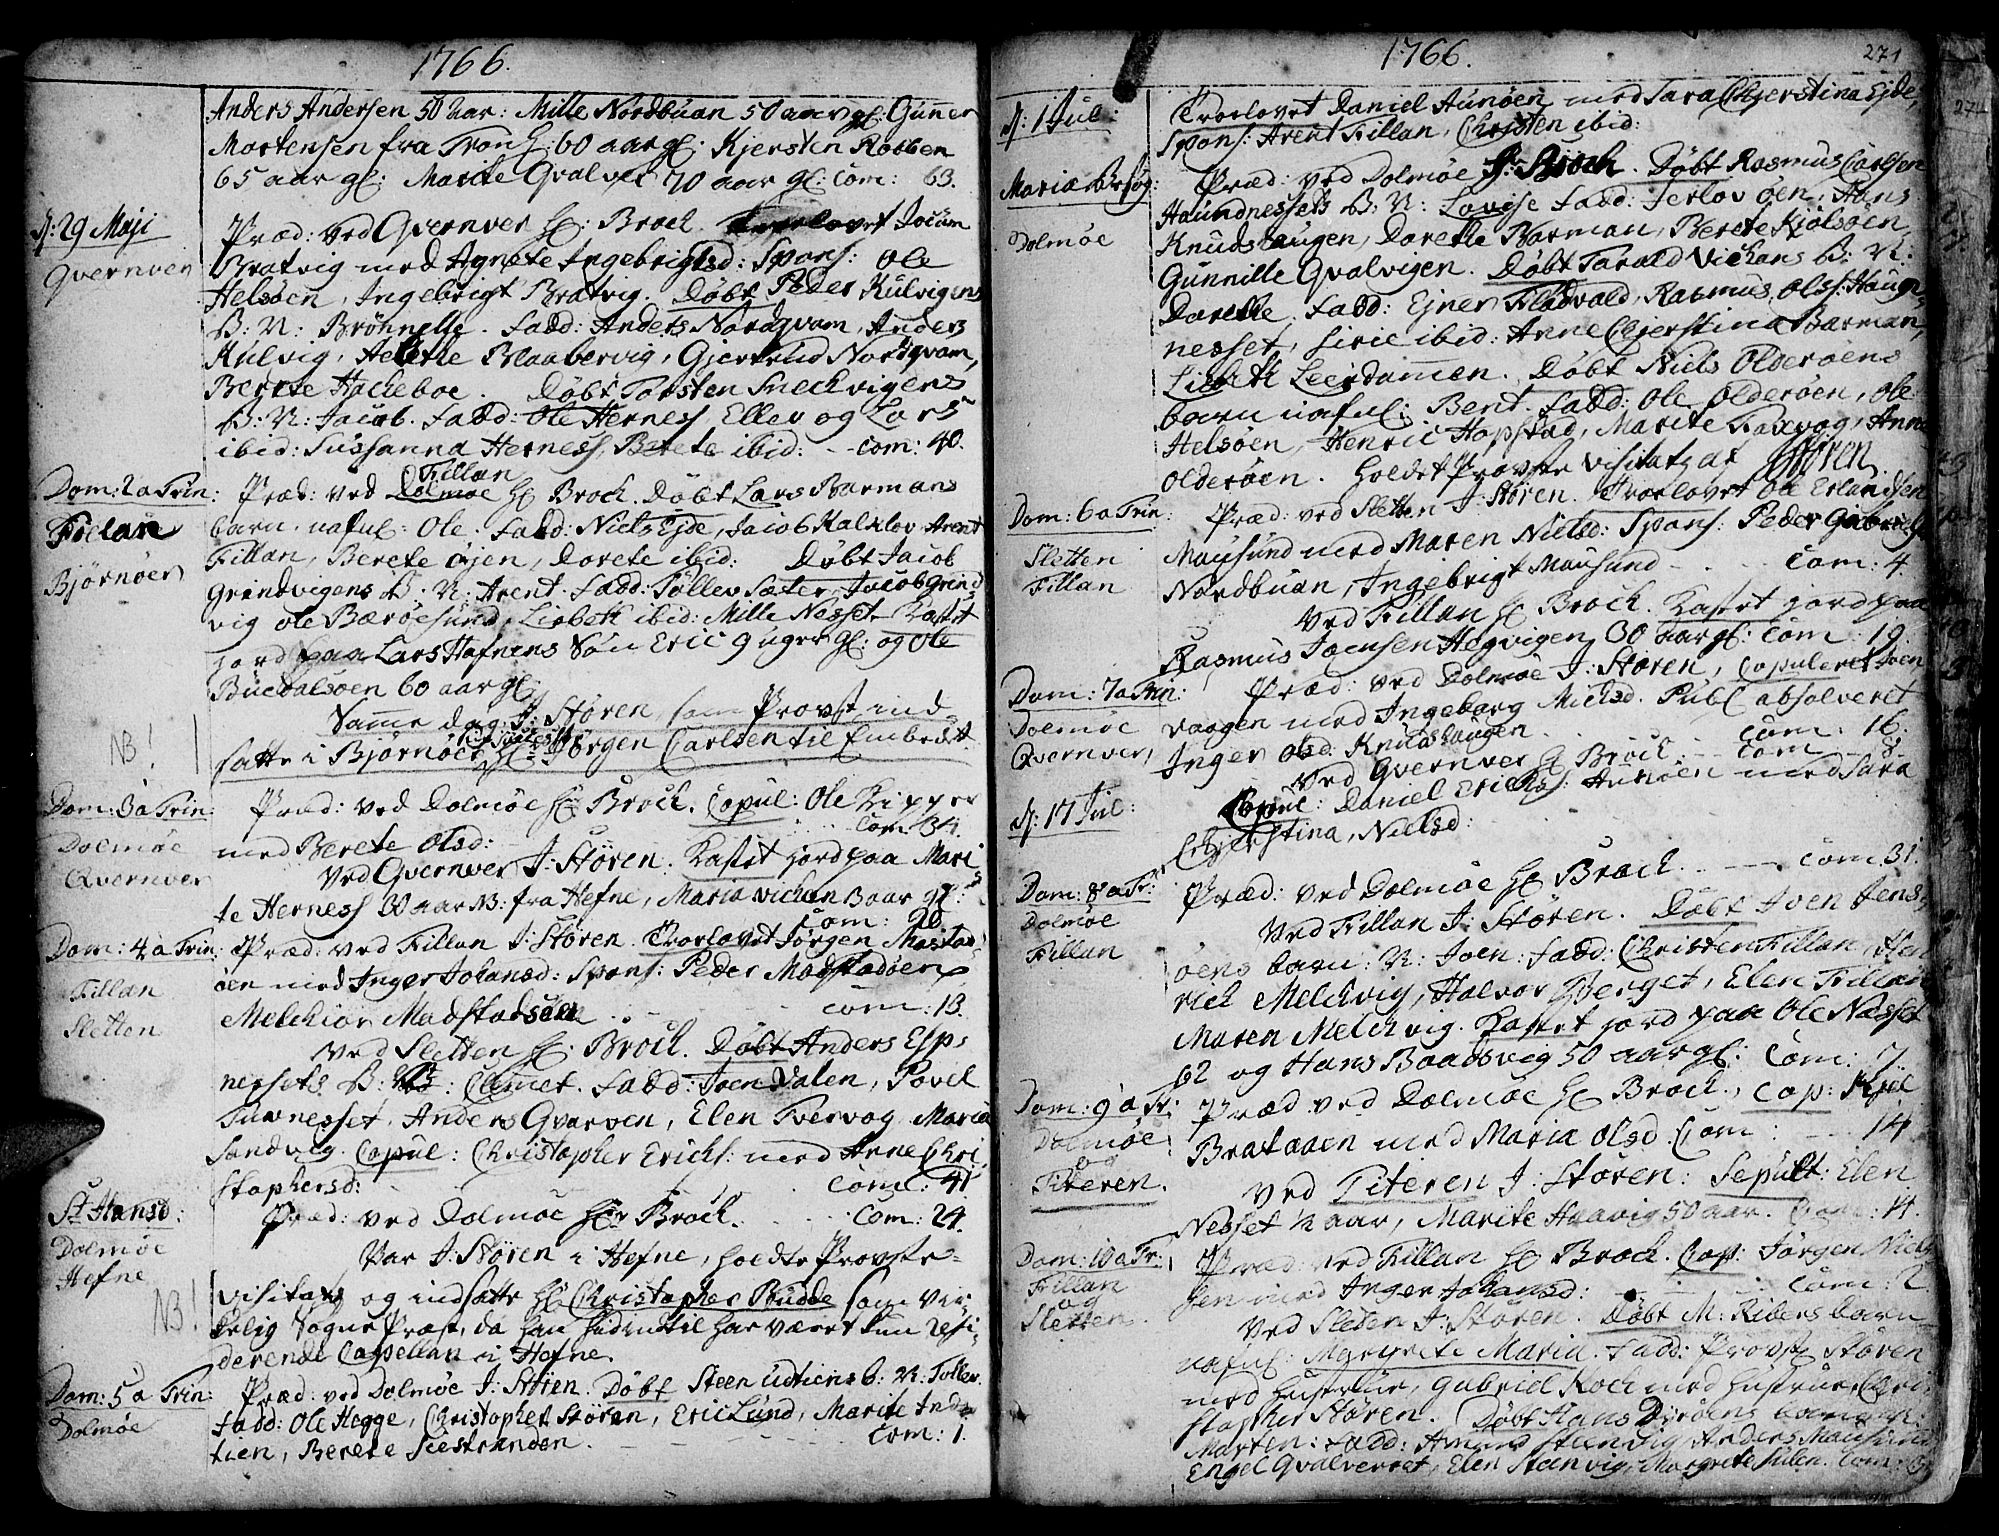 1766.
Anders Andersen 50 aar: Mille Nordbuan 50 aar gl: Gunner
Mortensen fra Tron 60 aar gl: Kjersten Robben
65 aar gl: Marite Qvalver 70 aar gl: Com: 63.
d: 29 Maji
Qvernver
Præd: ved Qvernver H: Broch. Trorlovet Jocum
Bratvig med Agnete Ingebrigtsd: Spons: Ole
Helsøen, Ingebrigt Bratvig. Døbt Peder Kulvigens
B: N: Brønnelle. Fadd: Anders Nordqvam, Anders
Kulvig, Aelethe Blaabervig, Gjertrud Nordqvam,
Berete Hackeboe. Døbt Torsten Sneckvigens
B: N: Jacob. Fadd: Ole Herness Ellev og Lars
ibid: Sussanna Herness, Berete ibid: -- Com: 40.
Dom: 2 a Trin:
Fillan
Bjørnøer
Fillan
Præd: ved Dolmøe H: Broch. Døbt Lars Barmans
barn nafnl: Ole. Fadd: Niels Ejde, Jacob Kalklov Arent
Fillan, Berete Øjen, Dorete ibid: Døbt Jacob
Grindvigens B: N: Arent. Fadd: Tollev Sæter, Jacob Grind
vig Ole Bærøesund, Lisbeth ibid: Mille Næsset. Kastet
jord paa Lars Hafnens Søn Eric 9 uger gl: og Ole
Buedalsøen 60 aar gl:
NB!
Samme dag J: Støren som Provst ind
satte i Bjørnøer Hr: Jørgen Carlsen til Embedet
Dom: 3 a Trin
Dolmøe
Qvernver
Præd: ved Dolmøe H: Broch. Copul: Ole Kipper
med Berete Olsd: Com: 34.
Ved Qvernver J: Støren. Kastet jord paa Mari
te Herness 30 aar NB: fra Hefne, Maria Vichan 3 aar gl:
Com: 20.
Dom: 4 a Trin:
Fillan
Sletten
Præd: ved Fillan J: Støren. Trorlovet Jørgen Mastad
øen med Inger Johansd: Spons: Peder Madstadøen
Melchior Madstadøen. Com: 13.
Ved Sletten H: Broch. Døbt Anders Esp
nessets B: N: Clemet. Fadd: Joen Valen, Povel
Tuvnesset, Anders Qvarven, Elen Tvervog, Maria
Sandvig. Copul: Christopher Erichs: med Anne Chri
stophersd: Com: 41
St Hansd:
Dolmøe
Hefne
Præd: ved Dolmøe Hr Broch. Com: 24.
Var J: Støren i Hefne, holdte Provste-
NB!
visitats og indsatte H: Christopher Budde som Ver
kelig Sogne Præst, da han hidindtil har været kun resi
derende Capellan i Hefne.
Dom: 5 a Trin:
Dolmøe
Præd: ved Dolmøe J: Støren. Døbt Steen Udtiens B: N: Toller.
Fadd: Ole Hegge, Christopher Støren, Eric Lund, Marite Ind
tien, Berete Seestranden. Com: 1.
1766.
271
d: 1 Jul:
Trorlovet Daniel Aunøen med Sara Chjerstina Ejde,
Spons: Arent Fillan, Christen ibid:
Mariæ besøg:
Dolmøe
Præd: ved Dolmøe Hr: Broch. Døbt Rasmus Carlsen
Haundnessets B: N: Lovise. Fadd: Ferlov øen, Hans
Knudshaugen, Dorethe Barman, Berete Kjølsøen,
Gunnille Qvalvigen. Døbt Tarald Vichans B: N:
Dorethe. Fadd: Ejner Fladvald, Rasmus Ols: Haugn
nesset, Sirie ibid: Anne Chjerstina Barman,
Lisbeth Leerdammen. Døbt Niels Olderøens
barn nafnl: Bent. Fadd: Ole Olderøen, Ole
Helsøen, Henric Hopstad, Marite Faxvog, Anne
Olderøen. Holdet Provste Visitatz af Støren
Dom: 6 a Trin
Sletten
Fillan
Præd: ved Sletten J: Støren. Trorlovet Ole Erlandsen
Mausund med Maren Nielsd: Spons: Peder Gabriels
Nordbuan, Ingebrigt Mausund Com: 4.
Ved Fillan H: Broch. Kastet jord paa
Rasmus Joensen Hegvigen 30 aar gl: Com: 19.
Dom: 7 a Trin:
Dolmøe
Qvernver
Præd: ved Dolmøe J: Støren, Copuleret Joen
vaagen med Ingeborg Michsd. Publ absolveret
Inger Olsd: Knudshaugen. Com: 16.
Ved Qvernver H: Broch. Com -- 8.
d: 17 Jul:
Copul: Daniel Erichs: Aunøen med Sara
Chjerstina Nielsd:
Dom: 8 a Tr:
Dolmøe
Fillan
Præd: ved Dolmøe H: Broch. -- Com 31.
Ved Fillan J: Støren. Døbt Joen Jens
øens barn: N: Joen: Fadd: Christen Fillan, Hen
rich Melchvig, Halvor Berget, Elen Fillan
Maren Melchvig. Kastet jord paa Ole Næsset
62 og Hans Baadsvig 50 aar gl: Com: 7.
Dom: 9 a Tr:
Dolmøe
og
Titeren.
Præd ved Dolmøe H: Broch., Cop: Kjel
Brataaen med Maria Olsd. Com: -- 14
Ved Titeren J: Støren: Sepult: Elen
Nesset ½ aar, Marite Haavig 50 aar. Com: 14.
Dom: 10 a Tr:
Fillan
og
Sletten.
Præd: ved Fillan H: Broch. Cop: Jørgen Niel
sen med Inger Johansd: Com: 2
Ved Sletten J: Støren. Døbt M: Ribers barn
nafnl: Margrete Maria. Fadd: Provst Støren
med hustrue, Gabriel Koch med hustrue, Chri
stopher Støren. Døbt Hans Dyrøens barn N:
Morten: Fadd: Amund Steenvig, Anders Mausund
Engel Qvalverset, Elen Stenvig, Margrete Sulen. Com: